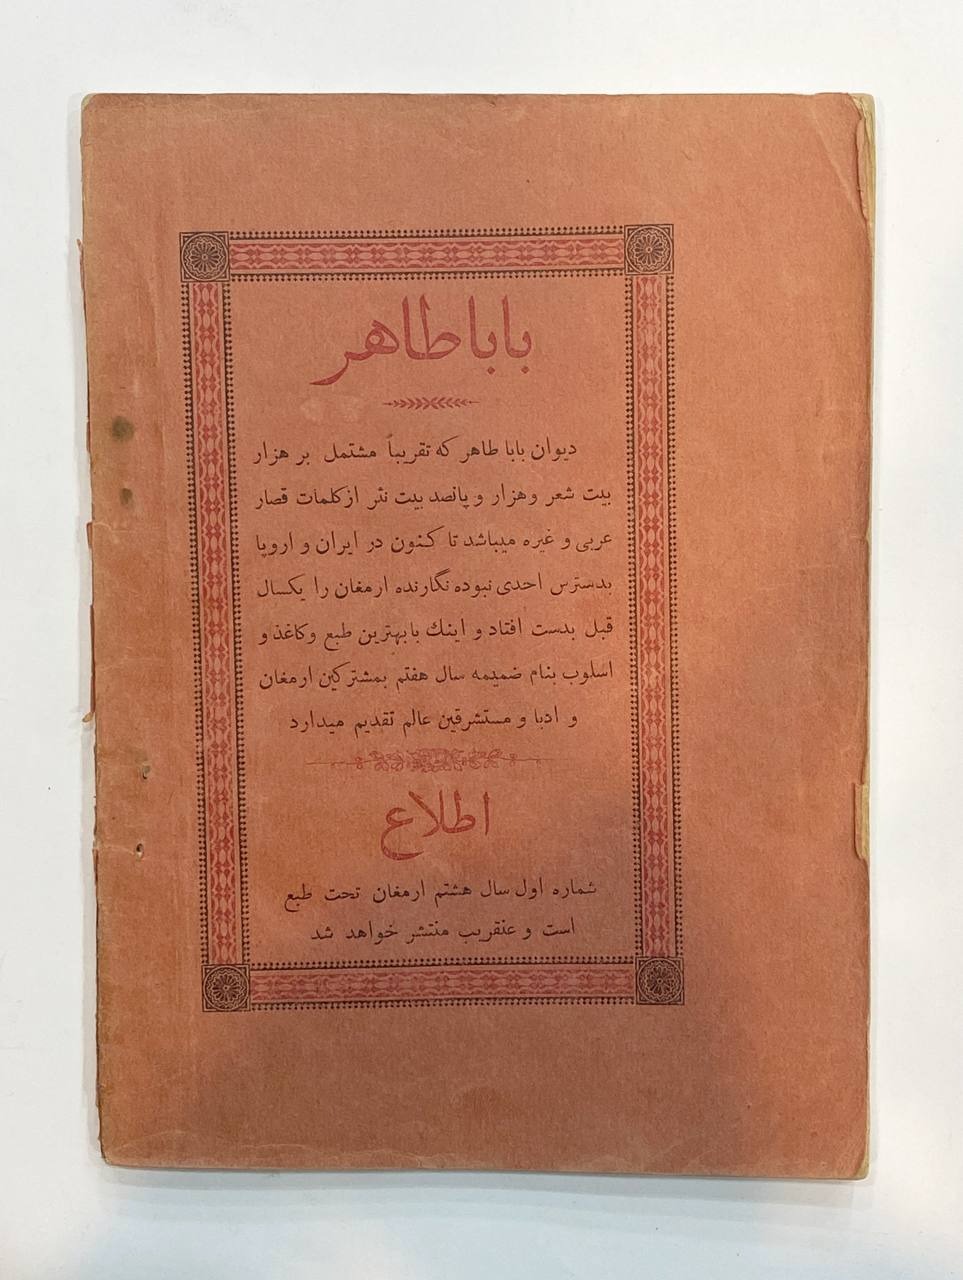 باباطاهر
دیوان بابا طاهر که تقریباً مشتمل بر هزار
بیت شعر و هزار و پانصد بیت نثر از کلمات قصار
عربی و غیره میباشد تا کنون در ایران و اروپا
بدسترس احدی نبوده نگارنده ارمغان را یکسال
قبل بدست افتاد و اینك با بهترین طبع و کاغذ و
اسلوب بنام ضمیمه سال هفتم بمشترکین ارمغان
و ادبا و مستشرقین عالم تقدیم میدارد
اطلاع
شماره اول سال هشتم ارمغان تحت طبع
است و عنقریب منتشر خواهد شد